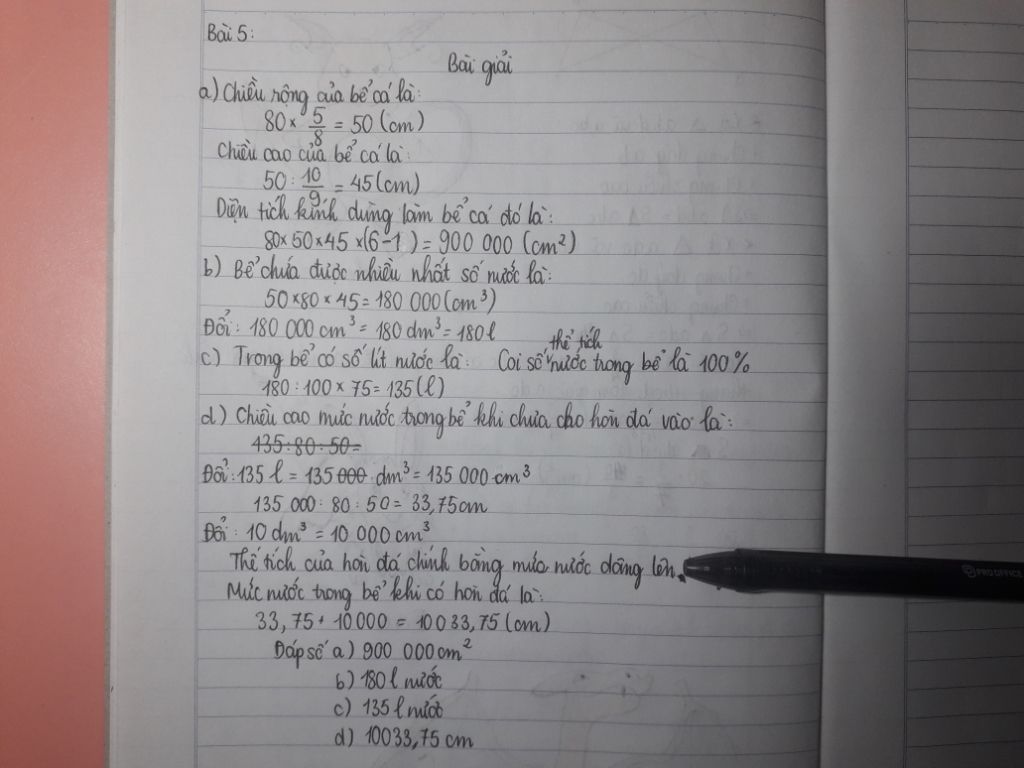 Bài 5:
Bài giải
a) Chiều rộng của bể cá là:
80 × 5/8 = 50 (cm)
Chiều cao của bể cá là:
50 : 10/9 = 45 (cm)
Diện tích kính dùng làm bể cá đó là:
80 × 50 × 45 × (6 - 1) = 900 000 (cm²)
b) Bể chứa được nhiều nhất số nước là:
50 × 80 × 45 = 180 000 (cm³)
Đổi: 180 000 cm³ = 180 dm³ = 180 l
c) Trong bể có số lít nước là: Coi số thể tích nước trong bể là 100%
180 : 100 × 75 = 135 (l)
d) Chiều cao mức nước trong bể khi chưa cho hòn đá vào là:
135 : 80 : 50 =
Đổi: 135 l = 135 000 dm³ = 135 000 cm³
135 000 : 80 : 50 = 33,75 cm
Đổi: 10 dm³ = 10 000 cm³
Thể tích của hòn đá chính bằng mức nước dâng lên.
Mức nước trong bể khi có hòn đá là:
33,75 + 10 000 = 10033,75 (cm)
Đáp số a) 900 000 cm²
b) 180 l nước
c) 135 l nước
d) 10033,75 cm
PRO OFFICE